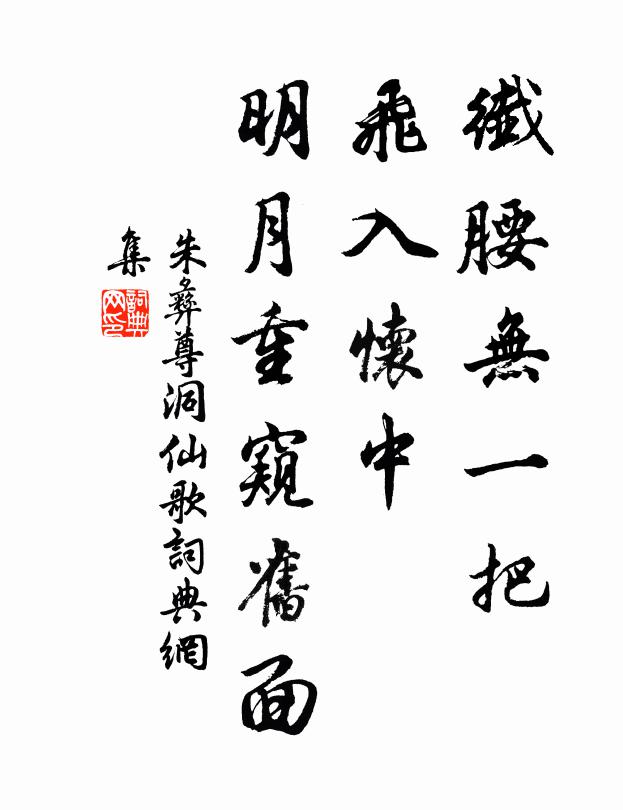 纖腰無一把
飛入懷中
明月重窺舊面
朱彝尊洞仙歌詞典網
集
詞典網印